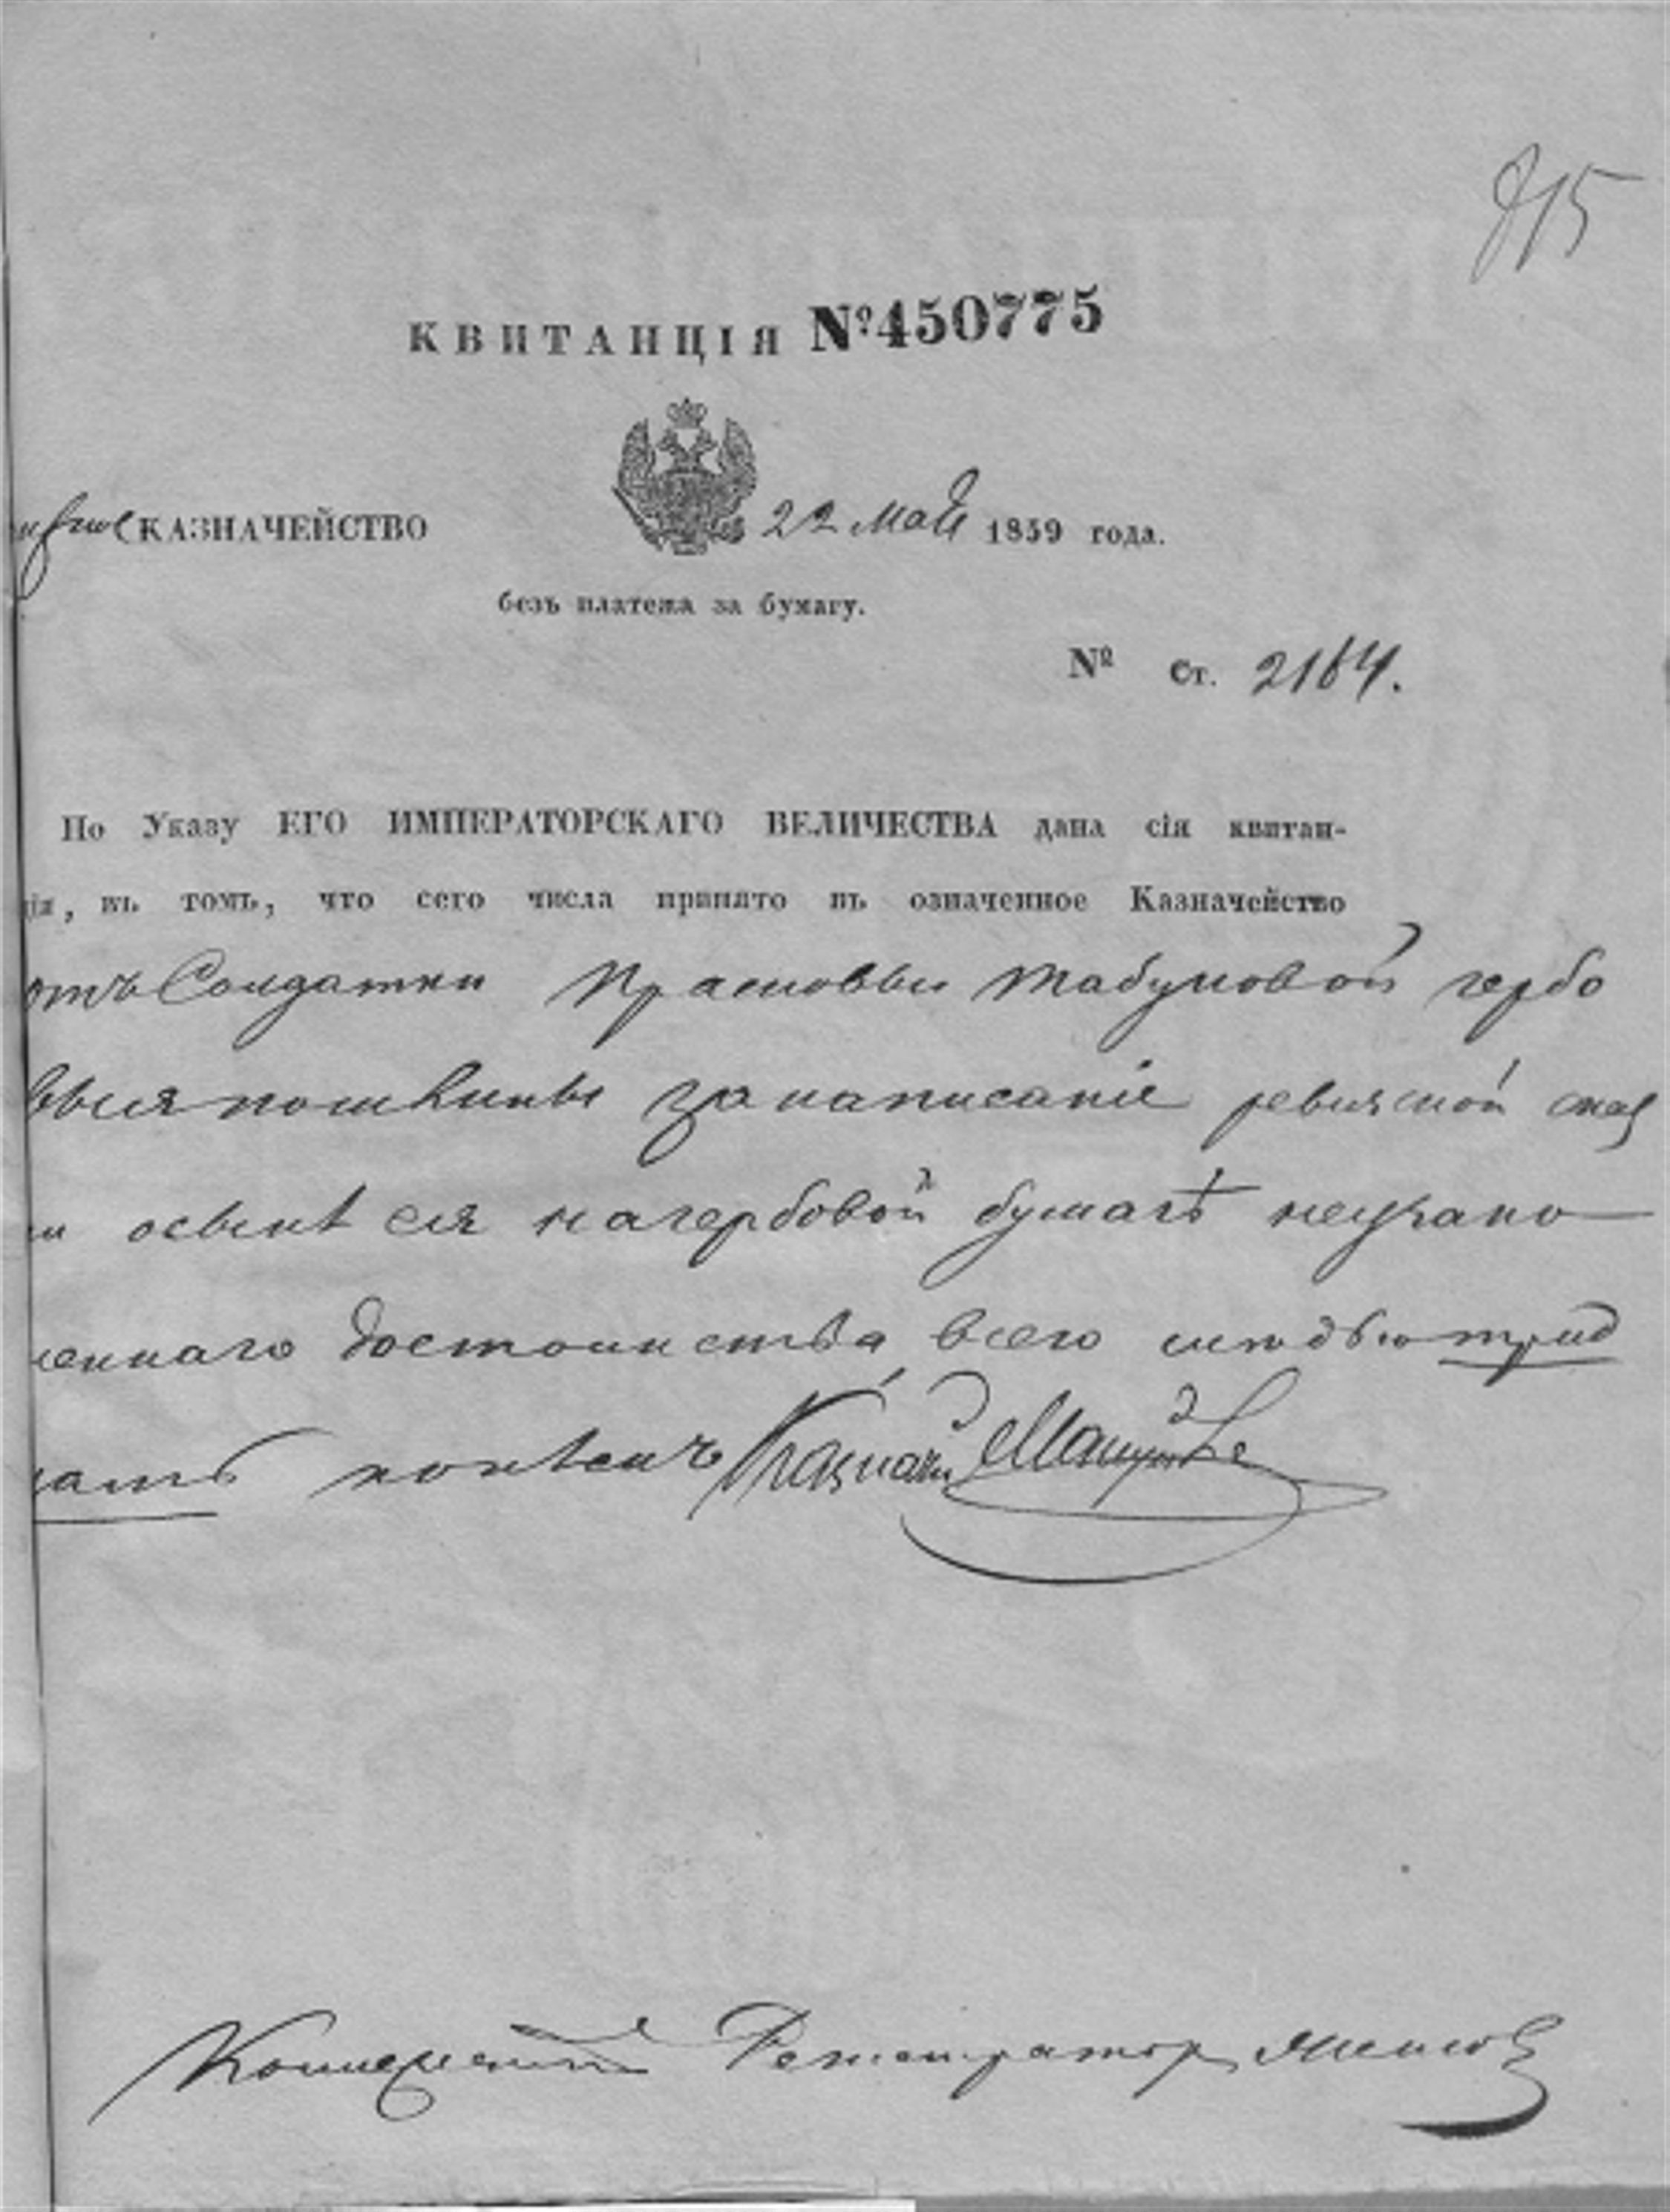 815
КВИТАНЦІЯ №450775
КАЗНАЧЕЙСТВО 22 Мая 1859 года.
безъ платежа за бумагу.
№ ст. 2164.
По Указу ЕГО ИМПЕРАТОРСКАГО ВЕЛИЧЕСТВА дана сія квитан-
ція, въ томъ, что сего числа принято въ означенное Казначейство
отъ Солдатки Прасковьи Табуновой гербо
выя пошлины за написаніе ревизской сказ
ки о семьѣ ея на гербовой бумагѣ неузако
неннаго достоинства, всего мѣдью трид
цать копѣекъ Казначей
Коллежскій Регистраторъ